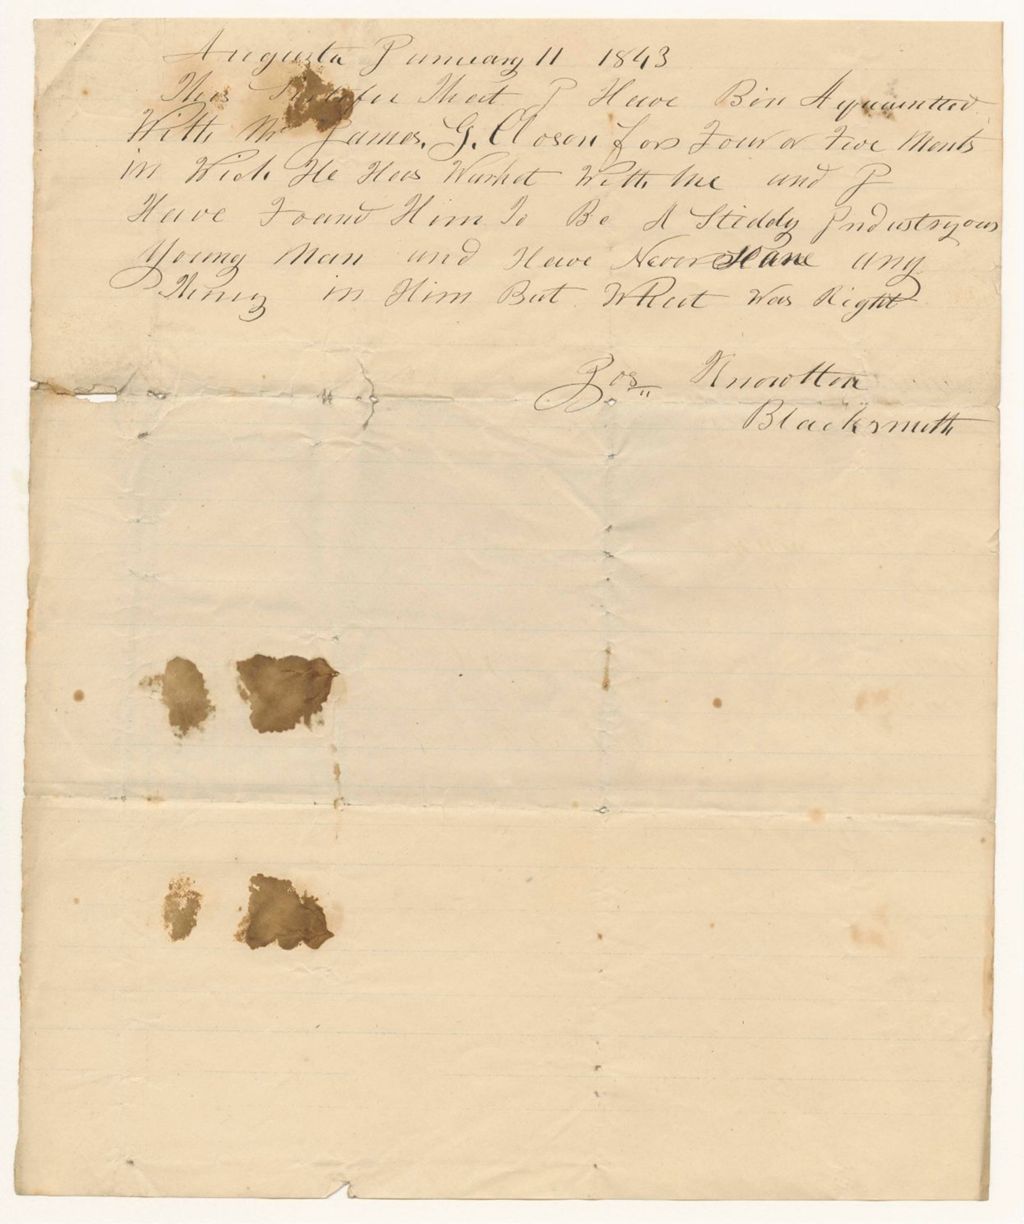 Augusta January 11 1843
This that I Have Bin Aquantted
With Mr James. G. Closon for Four or Five Monts
in Wich He Has Warket With Me and I
Have Found Him To Be A Stiddy Industryous
Young Man and Have Never any
Thing in Him But What Was Right
Jos Knowlton
Blacksmith